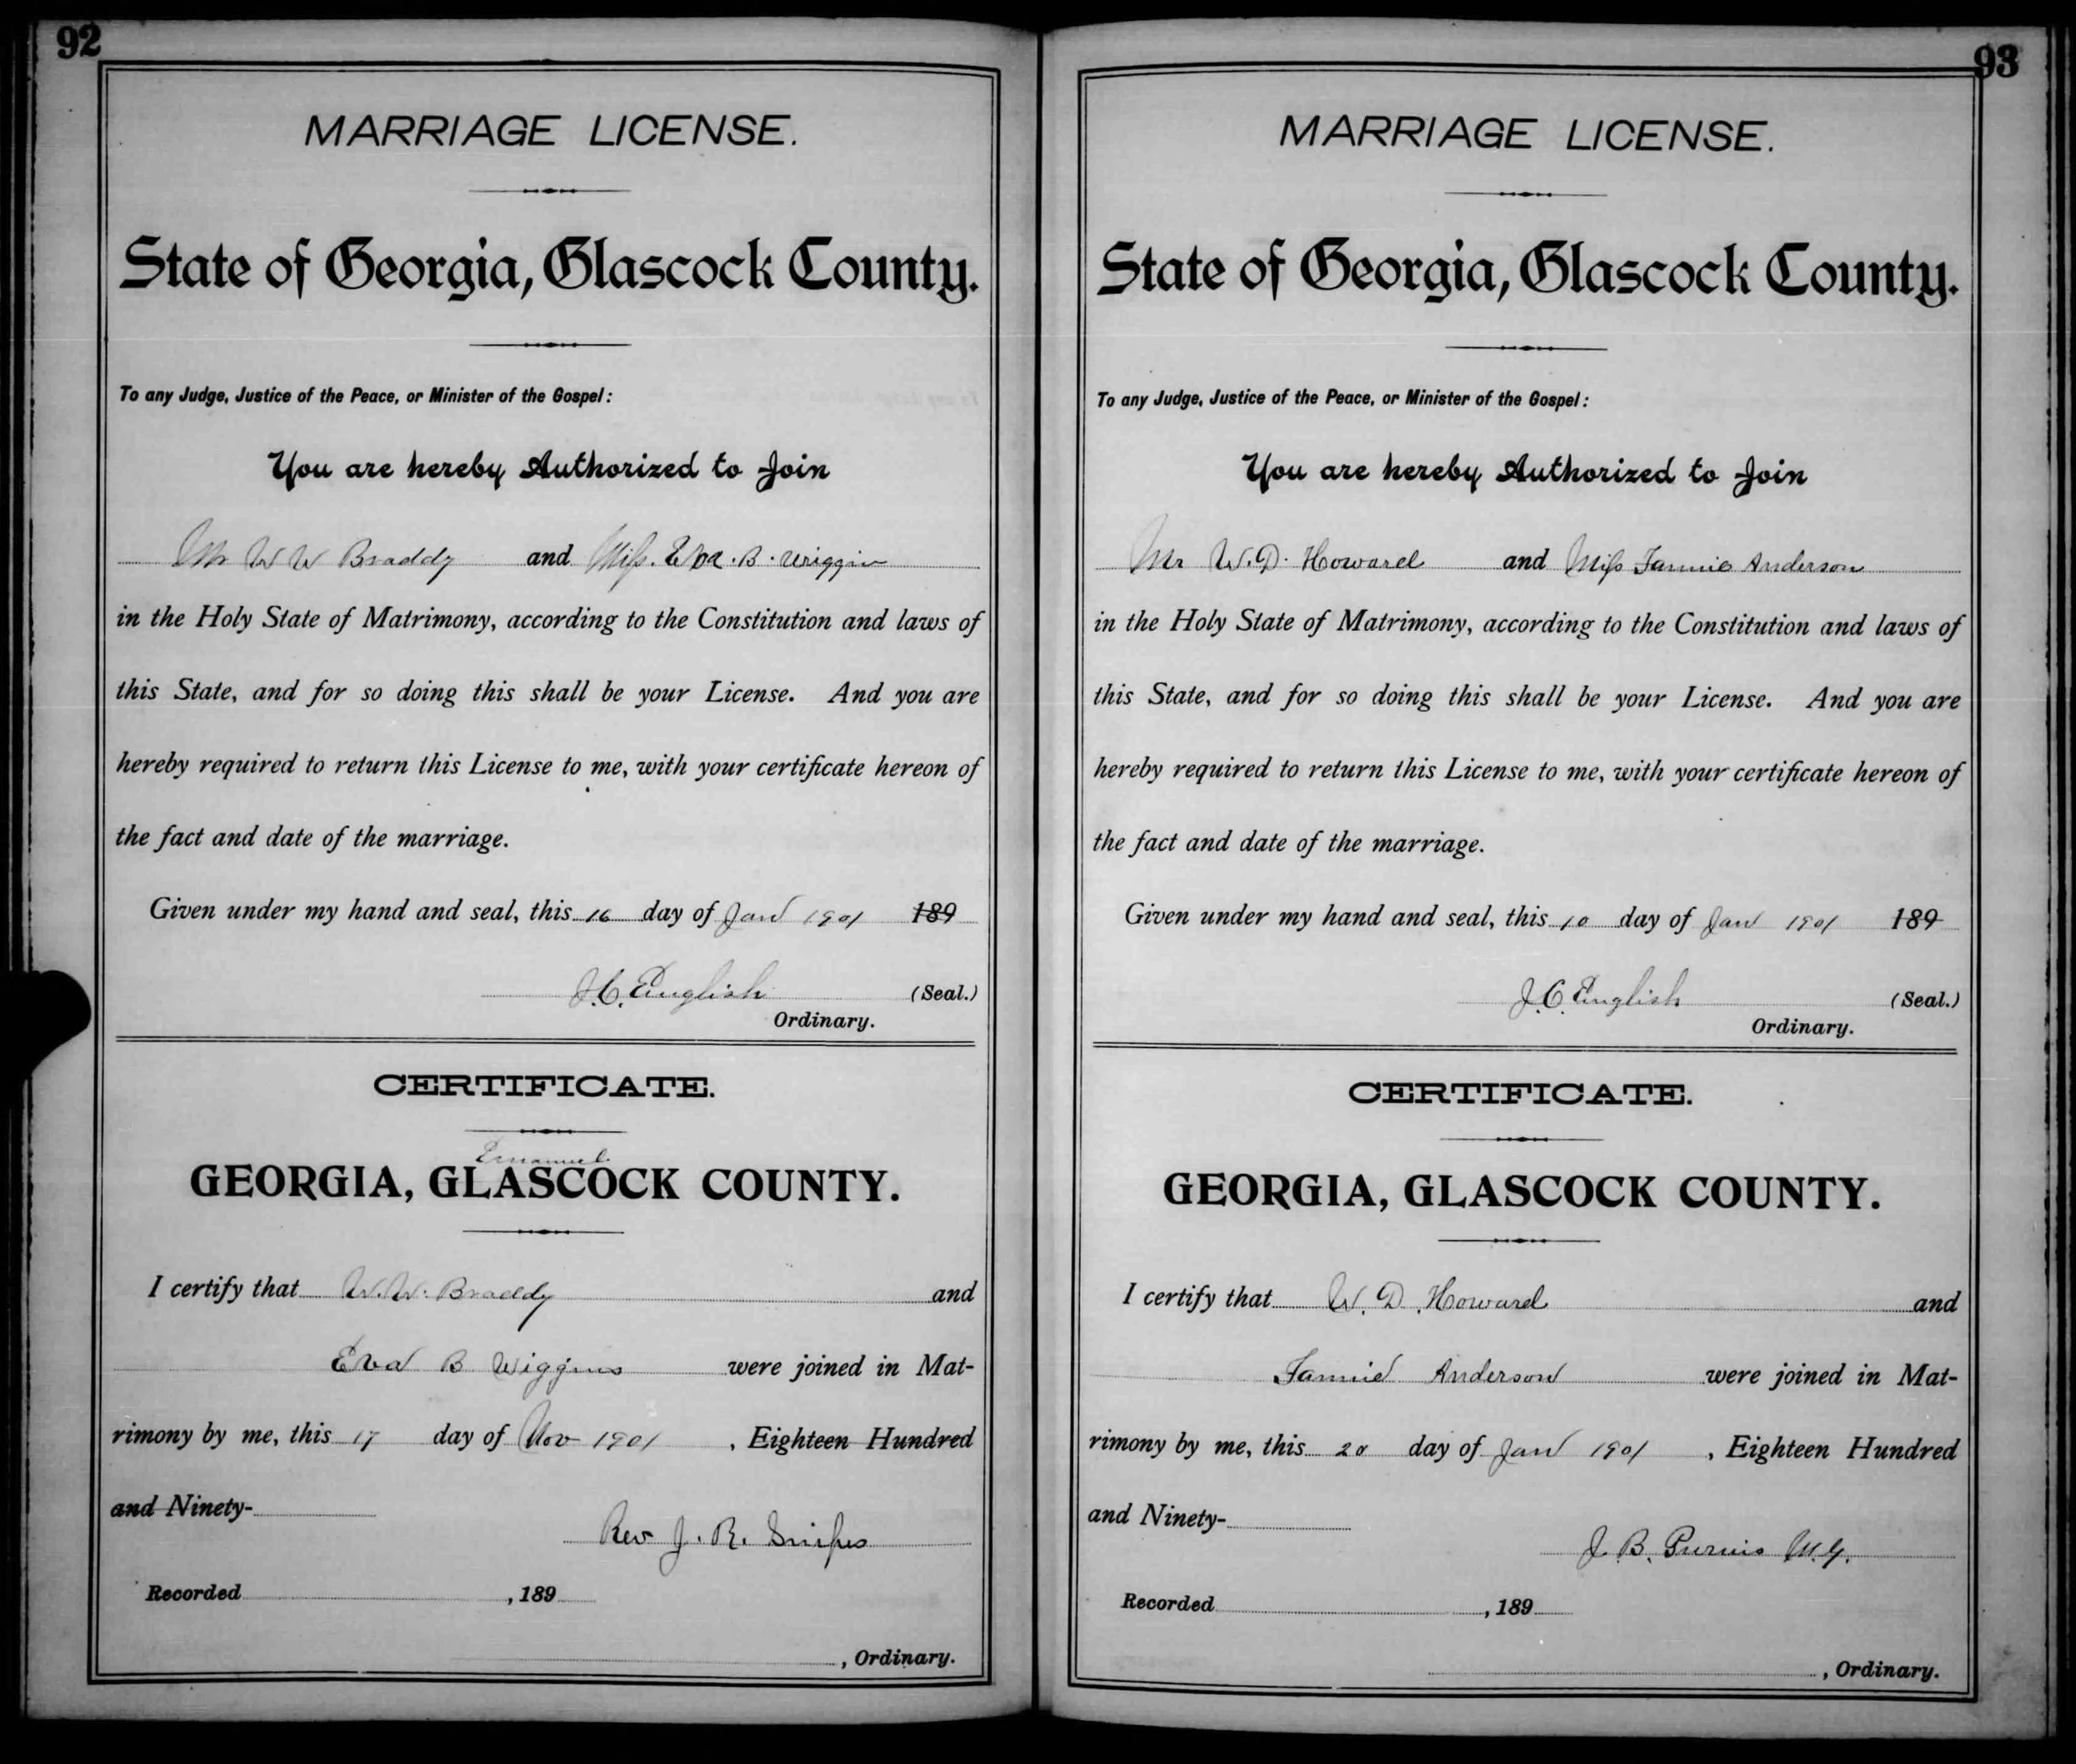 92
MARRIAGE LICENSE.
State of Georgia, Glascock County.
To any Judge, Justice of the Peace, or Minister of the Gospel:
You are hereby Authorized to Join
Mr W W Braddy and Miss. Eva. B. Wiggin
in the Holy State of Matrimony, according to the Constitution and laws of
this State, and for so doing this shall be your License. And you are
hereby required to return this License to me, with your certificate hereon of
the fact and date of the marriage.
Given under my hand and seal, this 16 day of Jan 1901 189
J.C. English (Seal.)
Ordinary.
CERTIFICATE.
Emanuel
GEORGIA, GLASCOCK COUNTY.
I certify that W. W. Braddy and
Eva B Wiggins were joined in Mat-
rimony by me, this 17 day of Nov 1901, Eighteen Hundred
and Ninety-
Rev J. R. Snipes
Recorded , 189
, Ordinary.
93
MARRIAGE LICENSE.
State of Georgia, Glascock County.
To any Judge, Justice of the Peace, or Minister of the Gospel:
You are hereby Authorized to Join
Mr W. D. Howard and Miss Fannie Anderson
in the Holy State of Matrimony, according to the Constitution and laws of
this State, and for so doing this shall be your License. And you are
hereby required to return this License to me, with your certificate hereon of
the fact and date of the marriage.
Given under my hand and seal, this 10 day of Jan 1901 189
J.C. English (Seal.)
Ordinary.
CERTIFICATE.
GEORGIA, GLASCOCK COUNTY.
I certify that W. D. Howard and
Fannie Anderson were joined in Mat-
rimony by me, this 20 day of Jan 1901, Eighteen Hundred
and Ninety-
J. B. Purvis M.G.
Recorded , 189
, Ordinary.